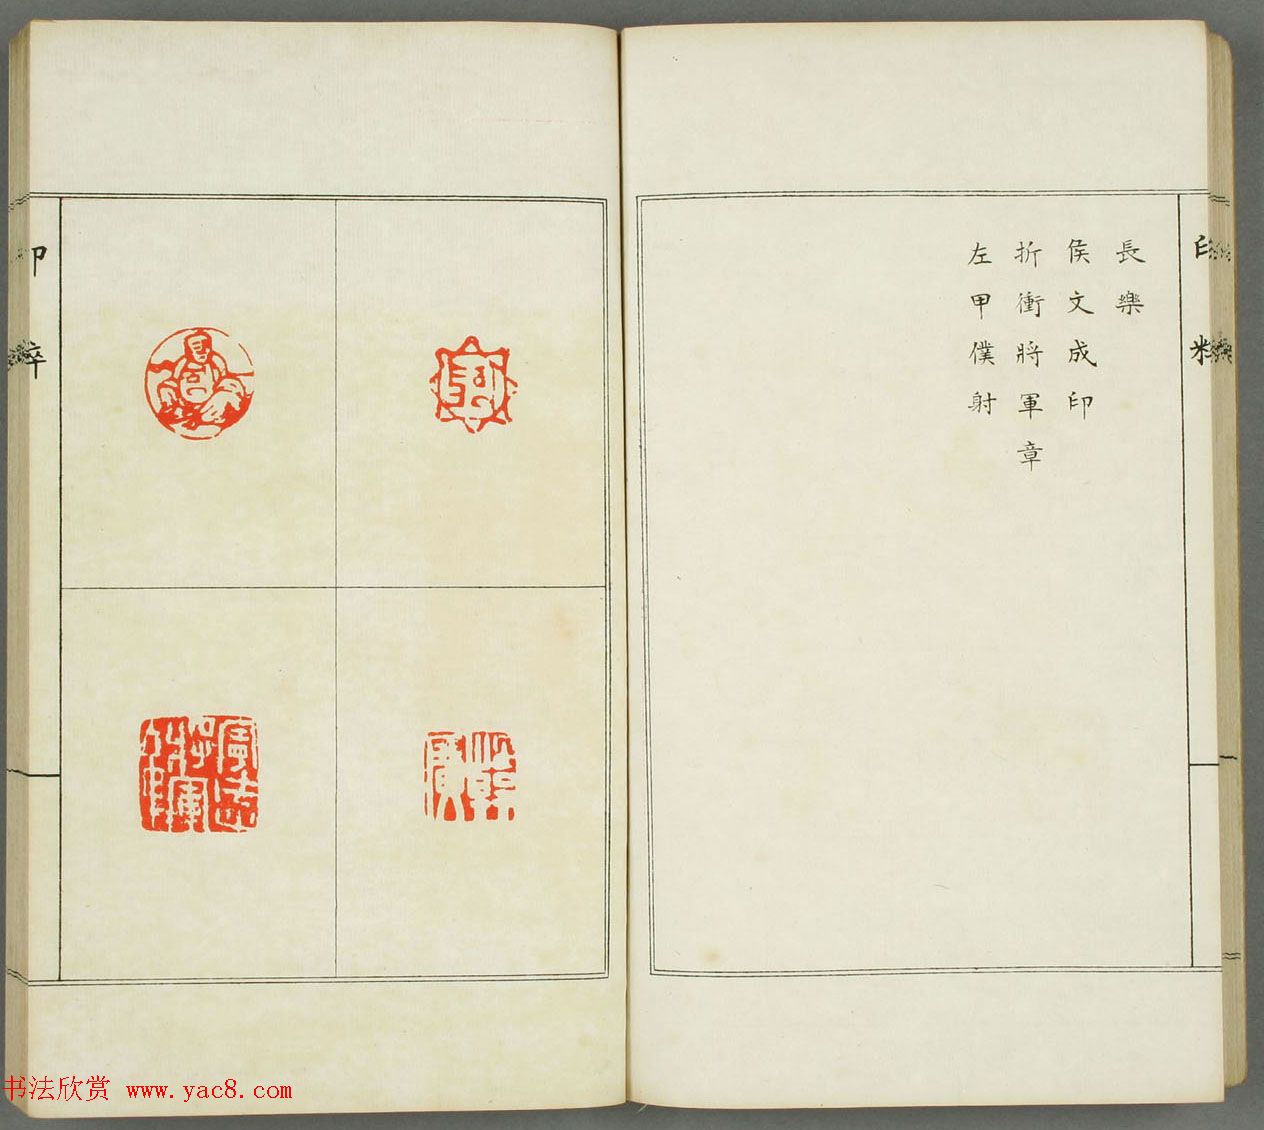 長樂
侯文成印
折衝將軍章
左甲僕射
印粹
书法欣赏 www.yac8.com